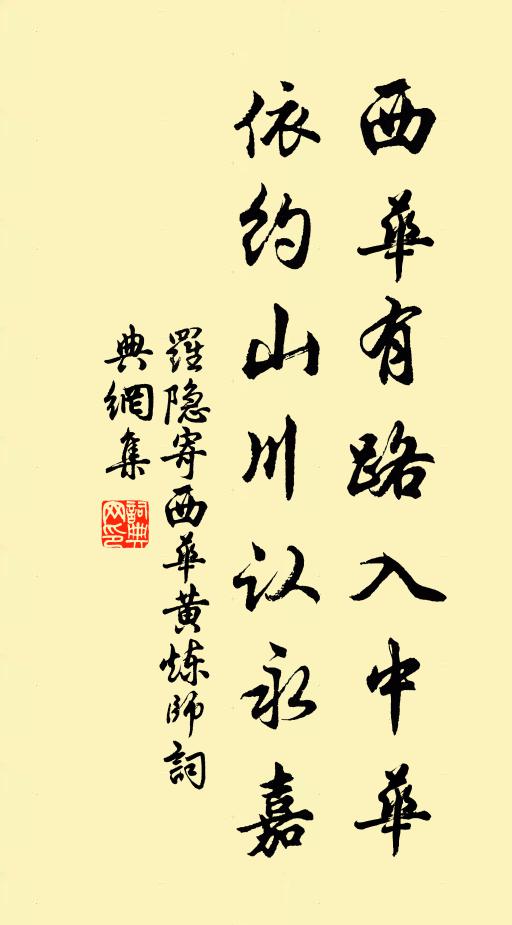 西華有路入中華
依約山川认永嘉
羅隐寄西華黄炼師詞
典網集
詞典网印